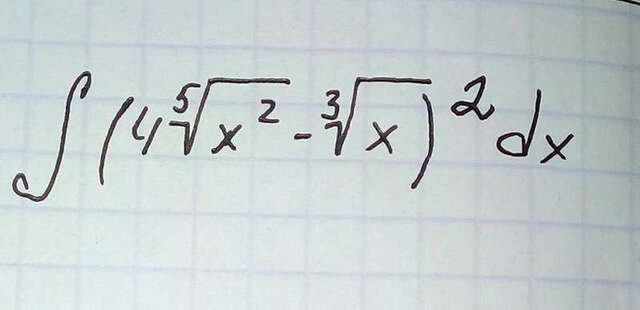 ∫ (4 ⁵√x² - ³√x)² dx